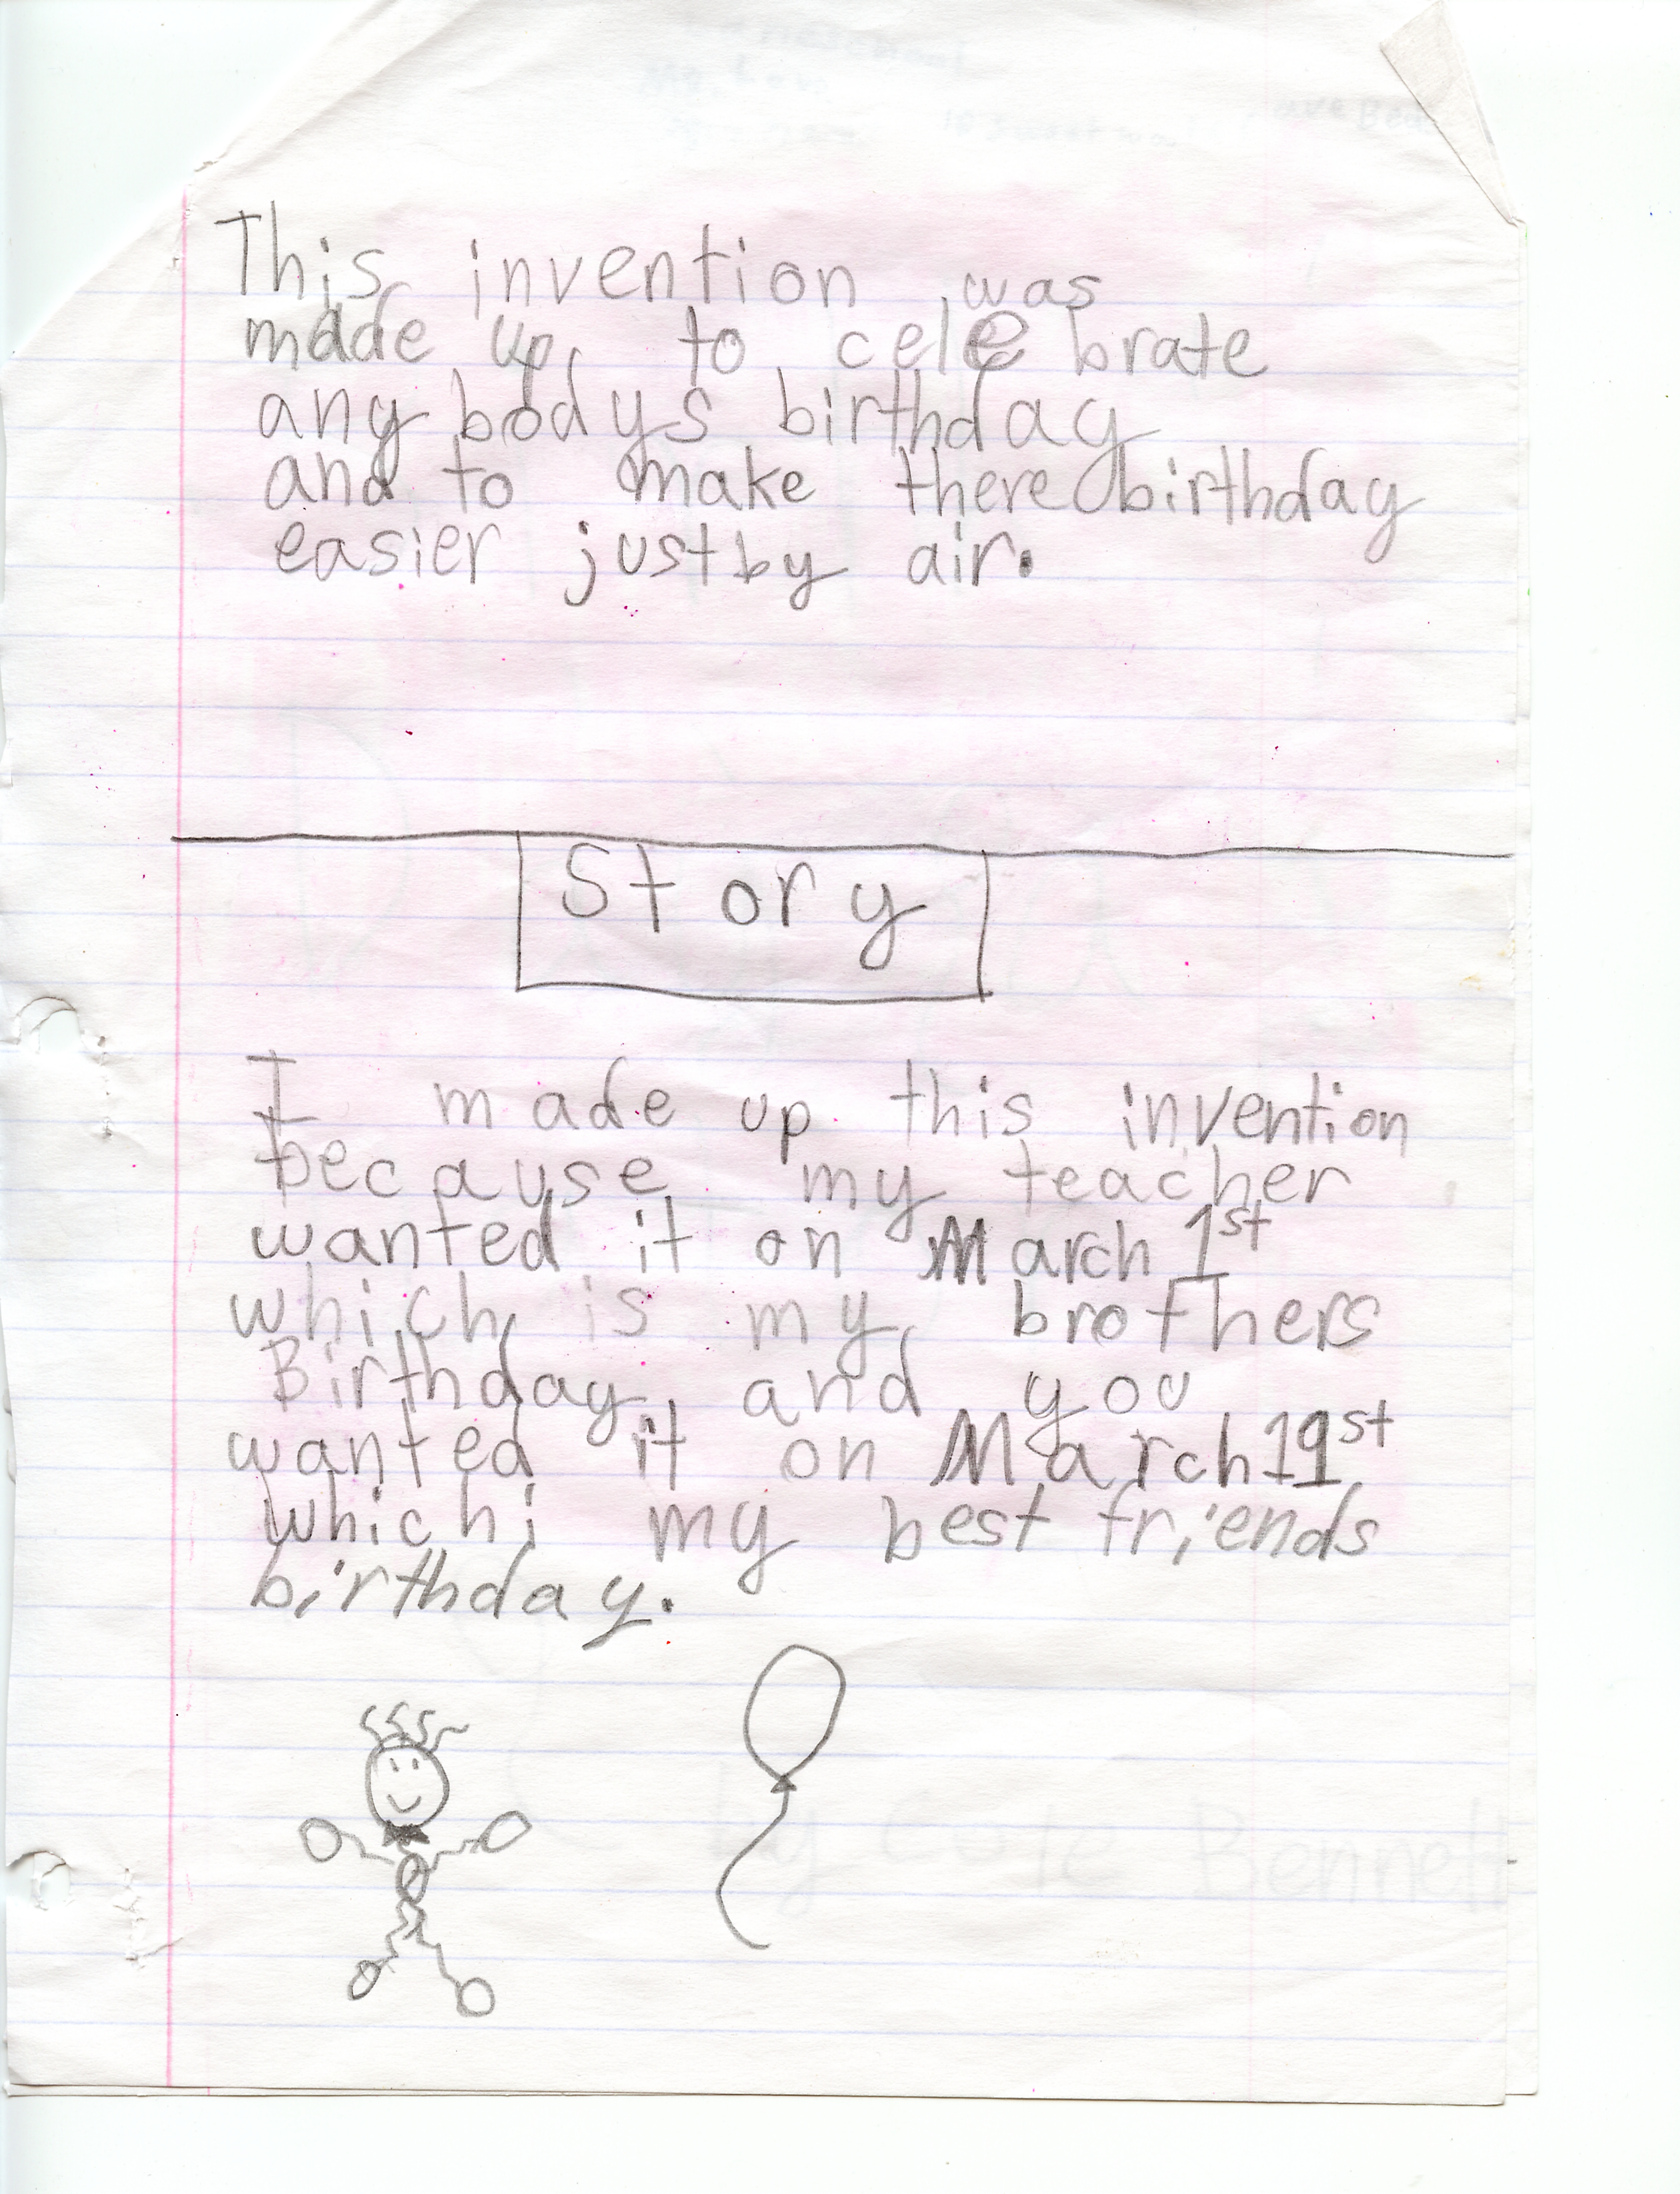 This invention was
made up to celebrate
any bodys birthday
and to make there birthday
easier just by air.
Story
I made up this invention
because my teacher
wanted it on March 1st
which is my brothers
Birthday and you
wanted it on March 19st
which i my best friends
birthday.
by Bennett